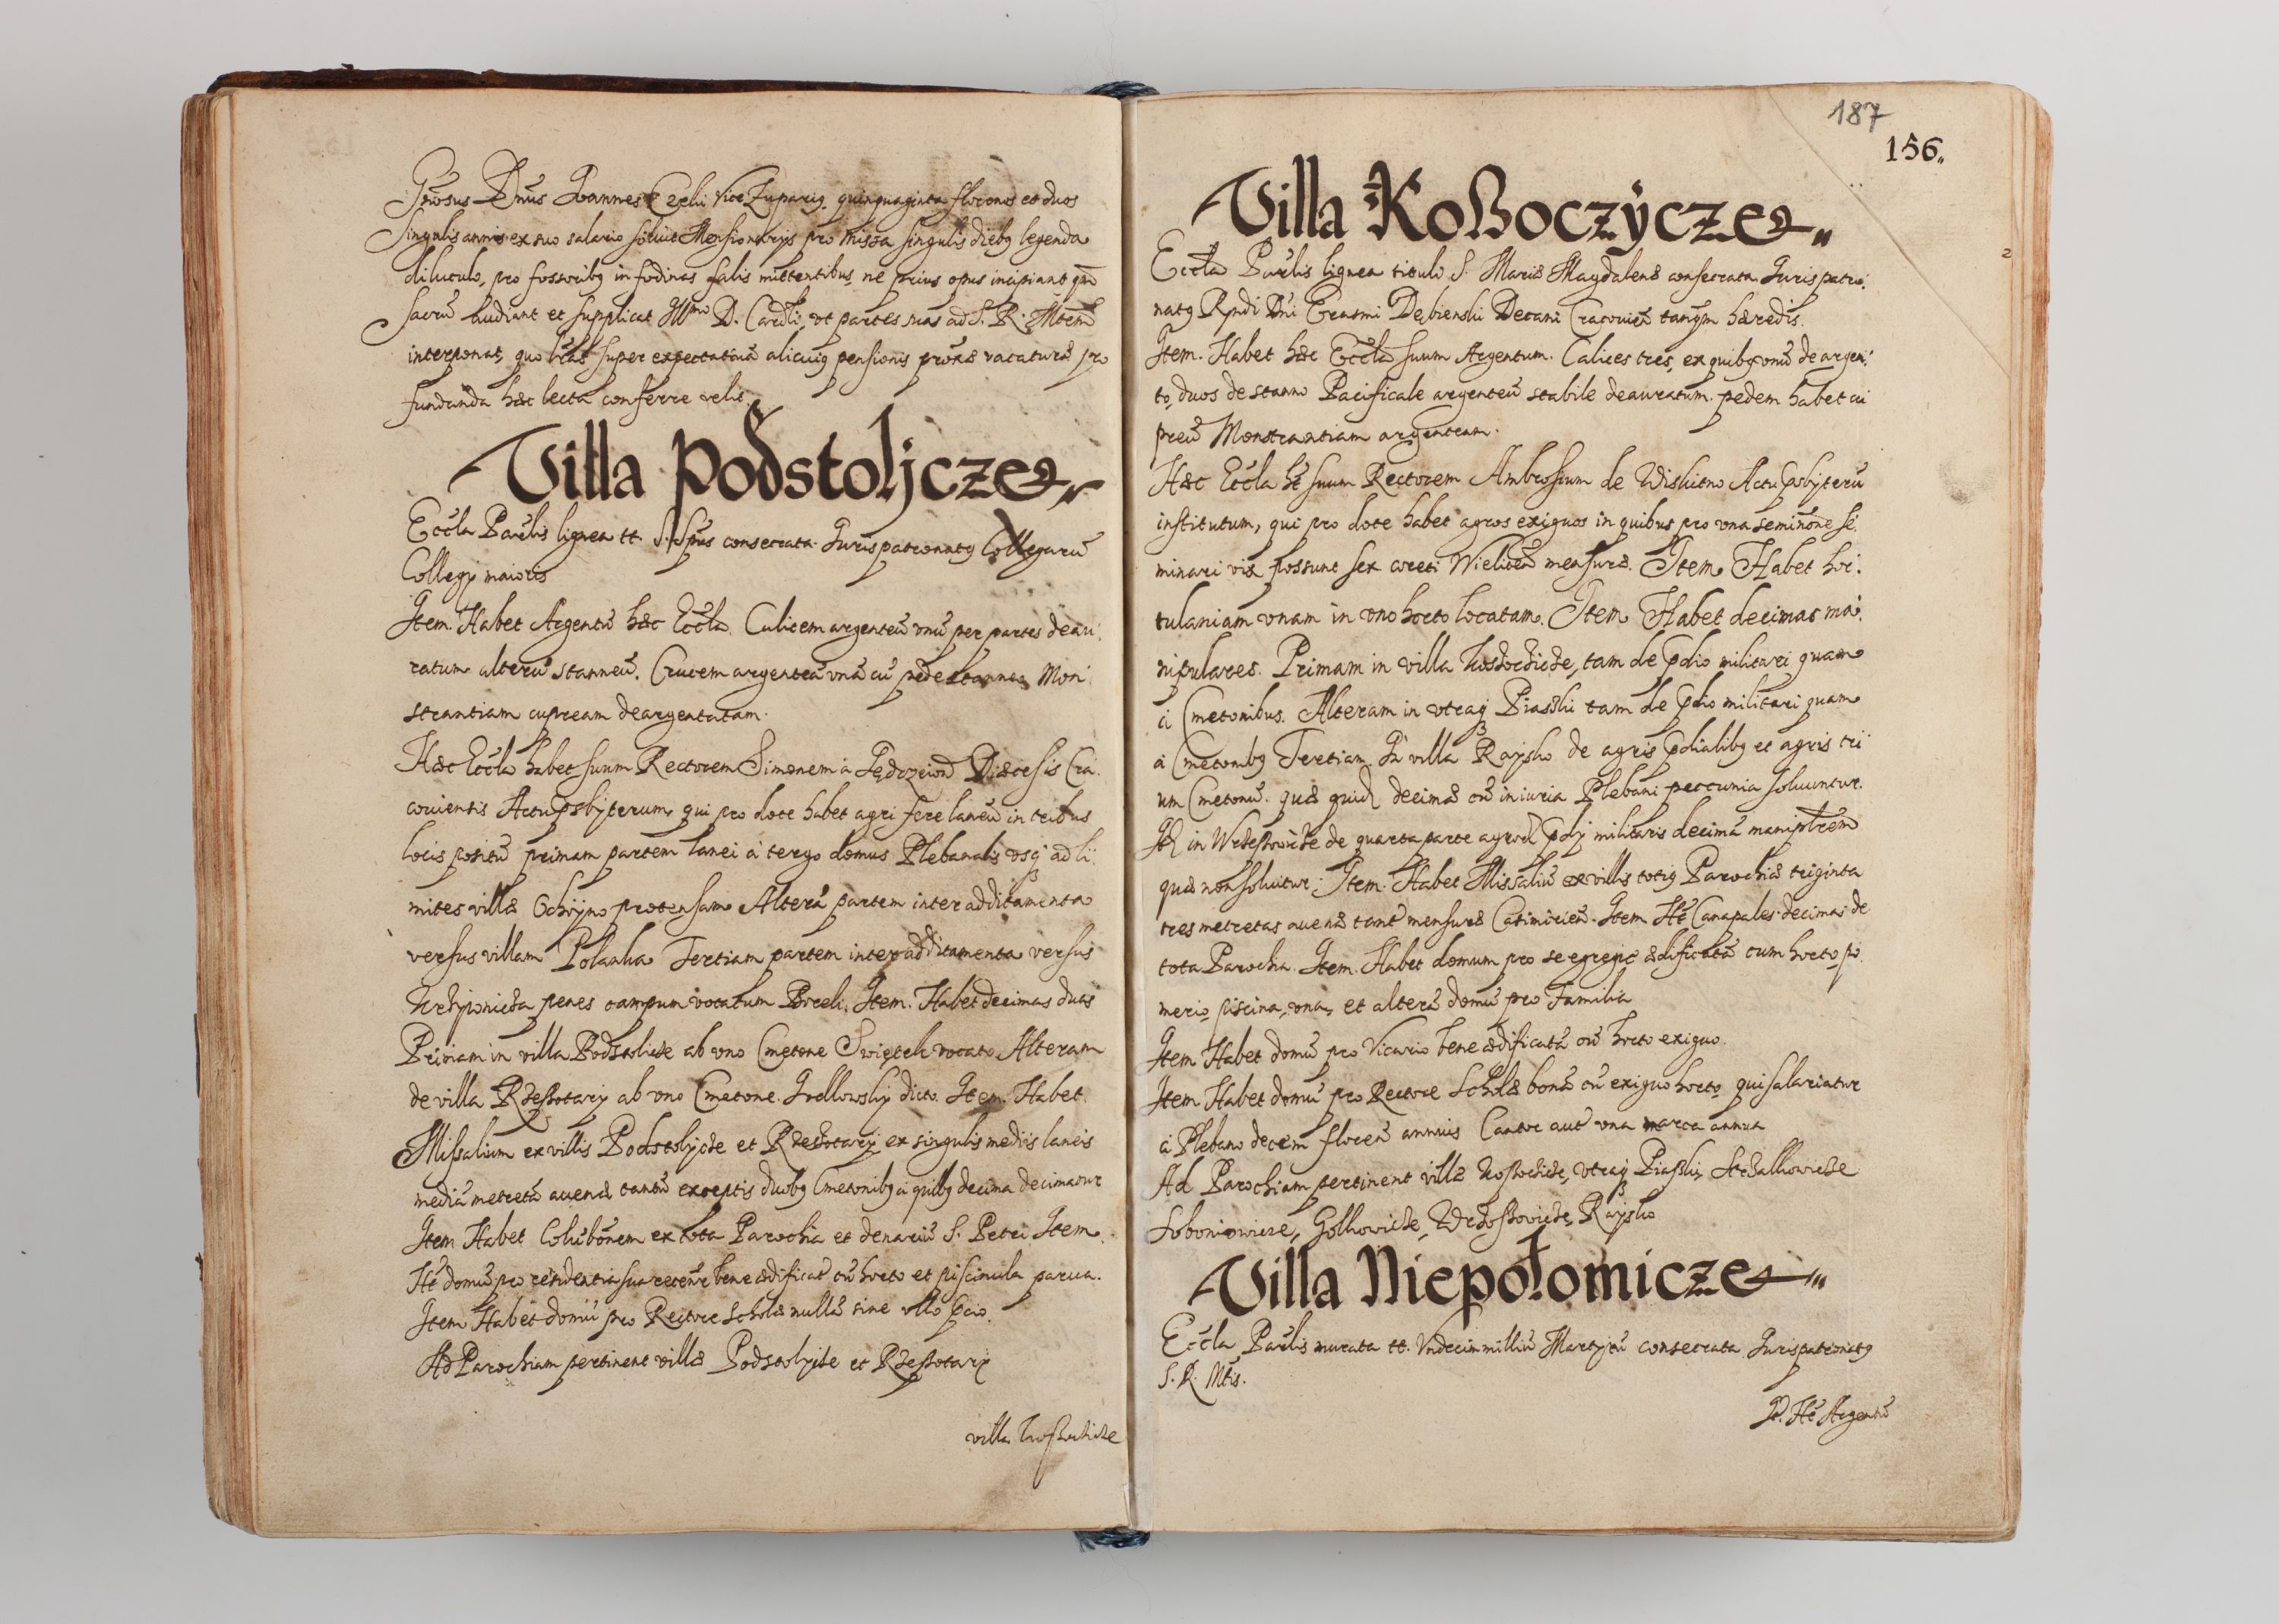 Gnosus Dnus Joannes Czelii Vice Zuparig. quinquaginta florenos et duos
singulis annis ex suo salario soluit Mansionarijs pro missa singulis dieb9 legenda
diluculo, pro fossorib9 in fodinas salis mittentibus, ne prius opus incipiant qm
sacru audiant et supplicat Illmo D. Cardli, vt partes suas ad S. R. Mtem
interponat, quo lras super expectatiua alicui9 pensionis proxe vacature pro
fundanda hac lecta conferre velit.
Villa Podstoljcze
Eccla Paulis lignea tt. S. Spus consecrata. Juris patronat9 Collegaru
Collegij maioris
Item. Habet Argentu hæc Eccla. Calicem argenteu vnu per partes deau
ratum alteru stanneu. Crucem argentea vna cu pede stanneo Mon
strantiam cupream deargentatam.
Hæc Eccla habet suum Rectorem Simonem à Diæcesis Cra.
couiensis Actu psbyterum, qui pro dote habet agri fere laneu in tribus
locis positu primam partem lanei à tergo domus Plebanalis vsq ad li
mites villæ Ochoÿno protensam Altera partem inter additamenta
versus villam Polanka Tertiam partem inter additamenta versus
penes campum vocatum Item. Habet decimas duas
Primam in villa Podstolicze ab vno Cmetone Swiętek vocato Alteram
de villa Rzeßotary ab vno Cmetone dicto. Item. Habet.
Missalium ex villis Podstolycze et Rzeßotary ex singulis mediis laneis
media metreta auenæ tantu exceptis duob9 Cmetonib9 à quib9 decima decimatur
Item Habet Colubonem ex tota Parochia et denariu S. Petri Item.
Ht domu pro residentia sua recenter bene ædificat cu horto et piscinula parua.
Item Habet domu pro Rectore scholæ nullu sine vllo
Ad Parochiam pertinent villæ Podstolycze et Rzeßotary
villa
187
156.
Villa Koßoczÿcze
Eccla Paulis lignea tituli S. Mariæ Magdalenæ consecrata Juris patro
nat9 Rndi Dni Erasmi Dębienski Decani Cracouien tanqm hæredis.
Item. Habet hæc Eccla suum Argentum. Calices tres, ex quib9 vnu de argen
to, duos de stanno Pacificale argenteu stabile deauratum. pedem habet cu
preu Monstrantiam argenteam.
Hæc Eccla ht suum Rectorem Ambrosium de Actu psbyteru
institutum, qui pro dote habet agros exiguos in quibus pro vna seminone se
minari vix possunt sex coreti Wielicen mensuræ. Item Habet hor
tulaniam vnam in vno horto locatam. Item Habet decimas ma
nipulares. Primam in villa tam de pdio militari quam
à Cmetonibus. Alteram in vtraq Piaßki tam de pdio militari quam
à Cmetonib9 Tertiam In villa Raysko de agris pdialib9 et agris tri
um Cmetonu. quæ quid decimæ cu iniuria Plebani peccunia soluuntur.
It in Wrzeßowicze de quarta parte agror pdij militaris decima maniplrem
quæ non soluitur. Item. Habet Missaliu ex villis toti9 Parochiæ triginta
tres metretas auenæ tant mensuræ Casimirien. Item Ht Canapales decimas de
tota Parochia. Item. Habet domum pro se egregie ædificata cum horto, po
merio, piscina, vna, et altera domu pro Familia
Item Habet domu pro Vicario bene ædificata cu horto exiguo.
Item Habet domu pro Rectore Scholæ bona cu exiguo horto, qui salariatur
à Plebano decem floren annuis Cantor aut vna marca annua
Ad Parochiam pertinent villæ Koßocicze, vtraq Piaßki, Strzalkowicze
Soboniowicze, Golkowicze, Wrzoßowicze, Raysko
Villa Niepołomicze
Eccla Paulis murata tt. Vndecim milliu Martyru consecrata Juris patronat9
S. R. Mtis.
It. Ht Argentu